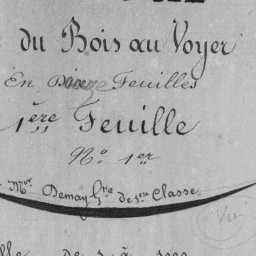 du Bois au Voyer
En Feuilles
1ère Feuille
N.° 1er
Mor Demay Gre de 1ere Classe.
Vu
de 1 à